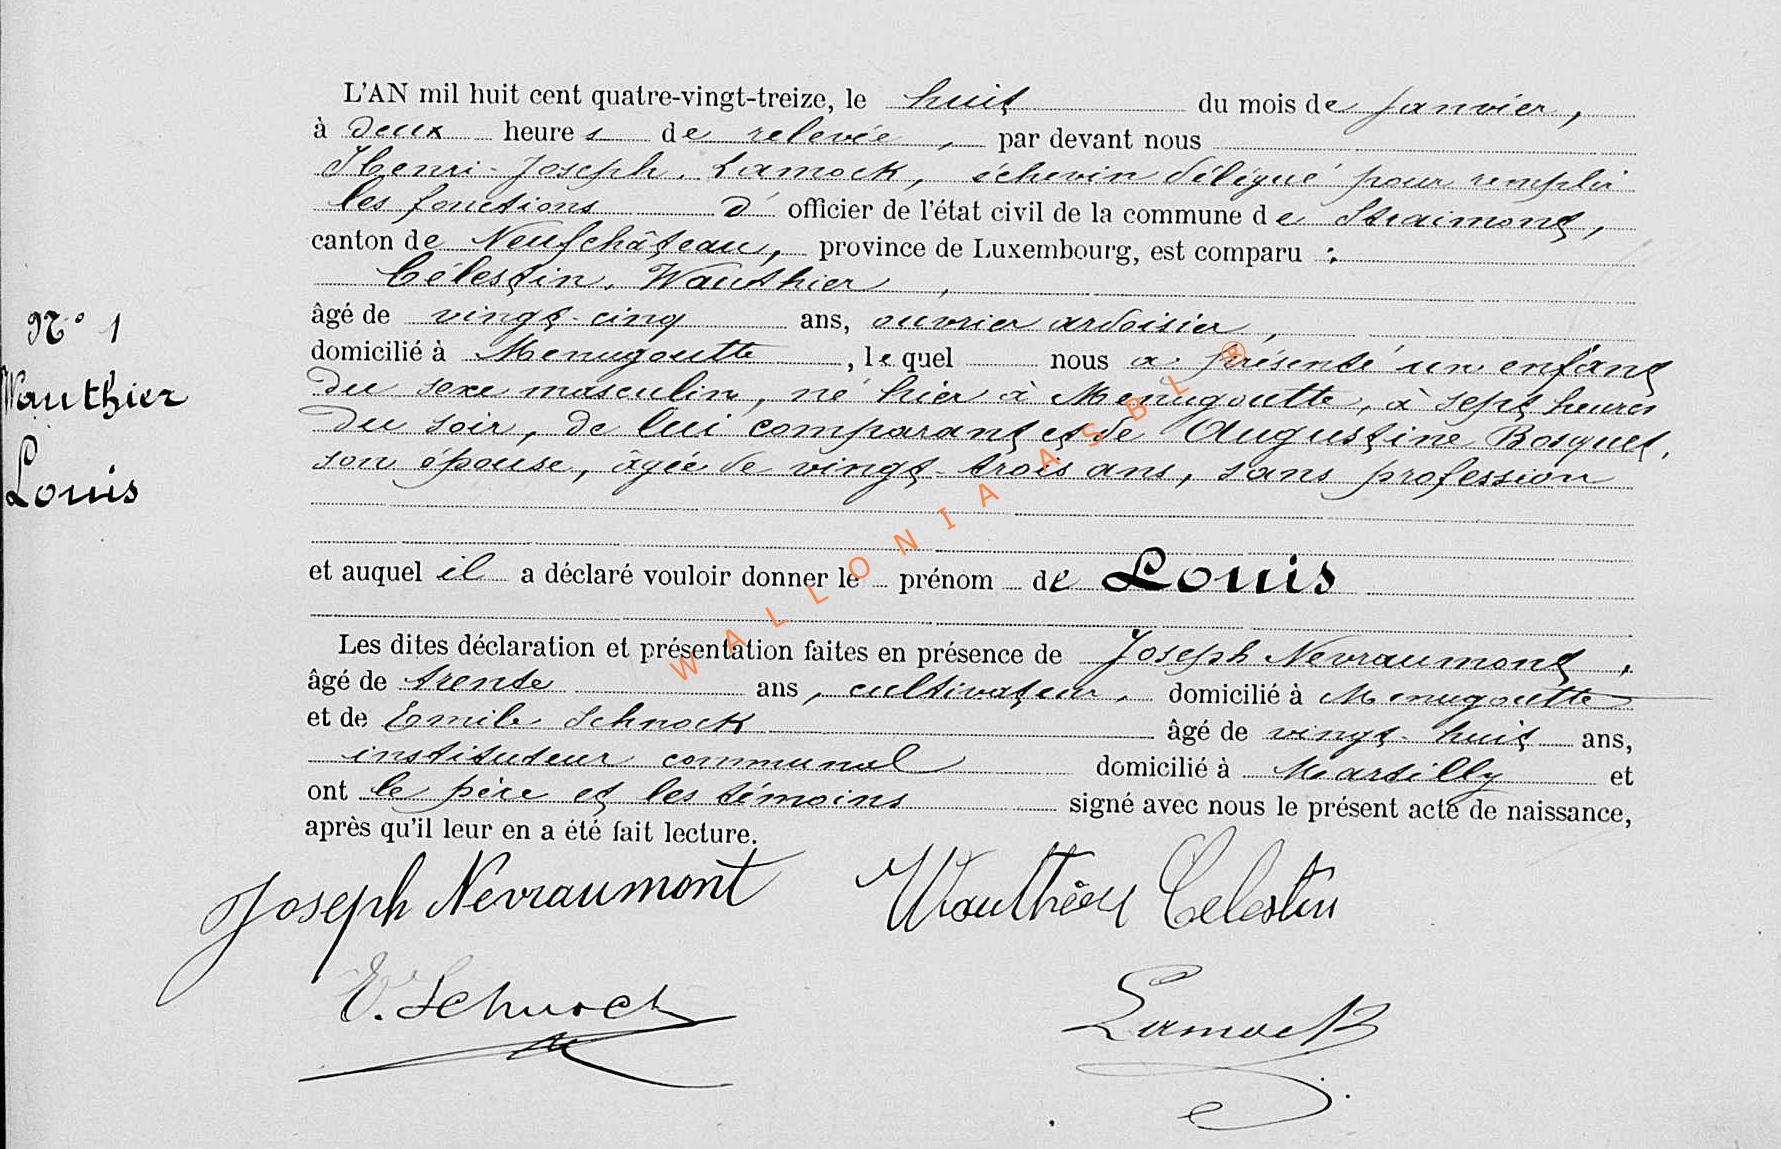 L'AN mil huit cent quatre-vingt-treize, le huit du mois de Janvier,
à deux heures de relevée, par devant nous
Henri-Joseph Lamock, échevin délégué pour remplir
les fonctions d' officier de l'état civil de la commune de Straimont,
canton de Neufchâteau, province de Luxembourg, est comparu :
Célestin Wauthier,
âgé de vingt-cinq ans, ouvrier ardoisier,
domicilié à Menugoutte, lequel nous a présenté un enfant
du sexe masculin, né hier à Menugoutte, à sept heures
du soir, de lui comparant et de Augustine Bosquet,
son épouse, âgée de vingt-trois ans, sans profession
et auquel il a déclaré vouloir donner le prénom de Louis
Les dites déclaration et présentation faites en présence de Joseph Nevraumont,
âgé de trente ans, cultivateur, domicilié à Menugoutte
et de Emile Schnock âgé de vingt-huit ans,
instituteur communal domicilié à Martilly et
ont le père et les témoins signé avec nous le présent acte de naissance,
après qu'il leur en a été fait lecture.
N° 1
Wauthier
Louis
Joseph Nevraumont Wauthier Celestin
E. Schnock Lamock
WALLONIA ASBL ®